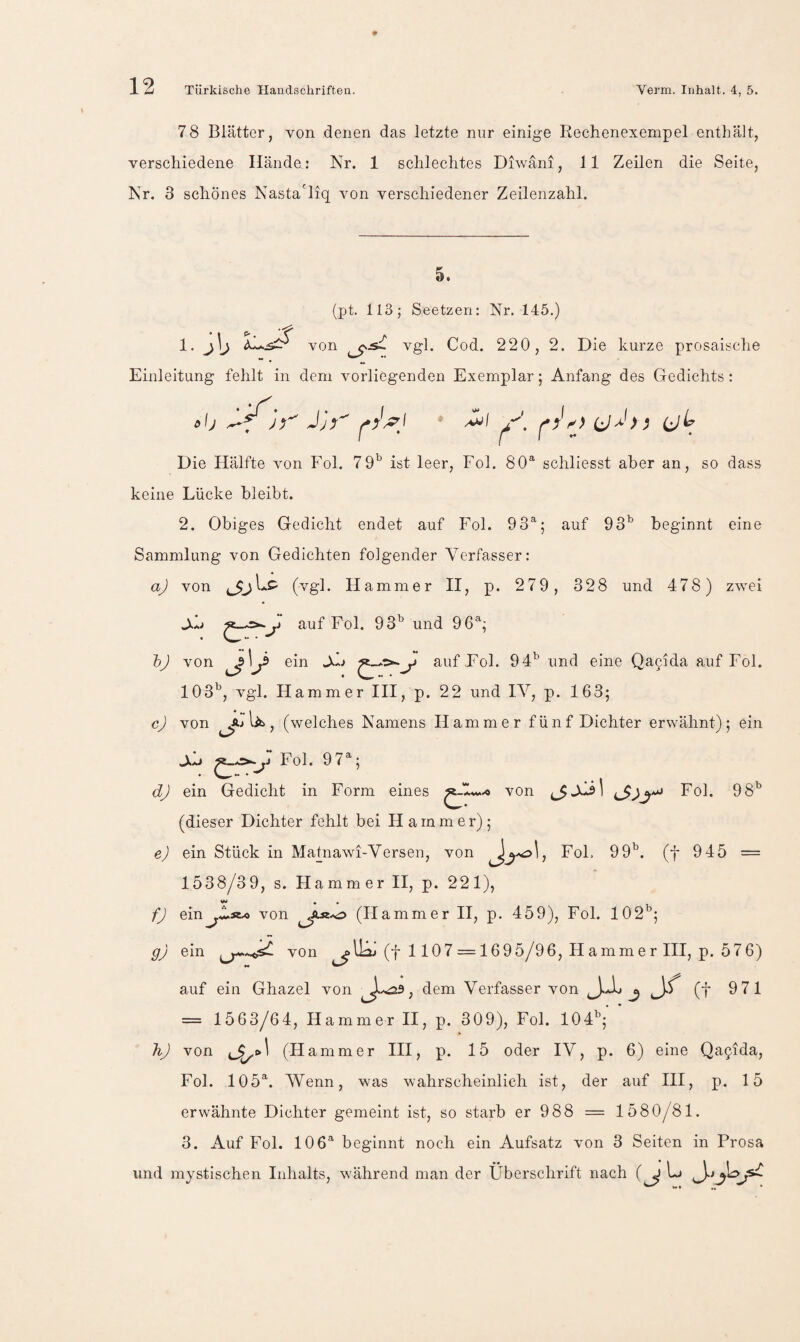 12 Türkische Handschriften. Verm. Inhalt. 4, 5.
78 Blätter, von denen das letzte nur einige Rechenexempel enthält,
verschiedene Hände: Nr. 1 schlechtes Dîwânî, 11 Zeilen die Seite,
Nr. 3 schönes Nastaʿlîq von verschiedener Zeilenzahl.
5.
(pt. 113; Seetzen: Nr. 145.)
1. گنجينۀ راز von يحيى vgl. Cod. 220, 2. Die kurze prosaische
Einleitung fehlt in dem vorliegenden Exemplar; Anfang des Gedichts:
Die Hälfte von Fol. 79b ist leer, Fol. 80a schliesst aber an, so dass
keine Lücke bleibt.
2. Obiges Gedicht endet auf Fol. 93a; auf 93b beginnt eine
Sammlung von Gedichten folgender Verfasser:
a) von (vgl. Hammer II, p. 279, 328 und 478) zwei
ترجيع بند auf Fol. 93b und 96a;
b) von ein ترجيع بند auf Fol. 94b und eine Qaçîda auf Fol.
103b, vgl. Hammer III, p. 22 und IV, p. 163;
c) von , (welches Namens Hammer fünf Dichter erwähnt); ein
ترجيع بند Fol. 97a;
d) ein Gedicht in Form eines مسبّع von افندى Fol. 98b
(dieser Dichter fehlt bei Hammer);
e) ein Stück in Maṯnawî-Versen, von اصولى, Fol. 99b. († 945 =
1538/39, s. Hammer II, p. 221),
f) ein معشّر von صنعى (Hammer II, p. 459), Fol. 102b;
g) ein تخميس von نظمى († 1107 = 1695/96, Hammer III, p. 576)
auf ein Ghazel von فضلى, dem Verfasser von گل و بلبل († 971
= 1563/64, Hammer II, p. 309), Fol. 104b;
h) von امرى (Hammer III, p. 15 oder IV, p. 6) eine Qaçîda,
Fol. 105a. Wenn, was wahrscheinlich ist, der auf III, p. 15
erwähnte Dichter gemeint ist, so starb er 988 = 1580/81.
3. Auf Fol. 106a beginnt noch ein Aufsatz von 3 Seiten in Prosa
und mystischen Inhalts, während man der Überschrift nach (بحر طويل